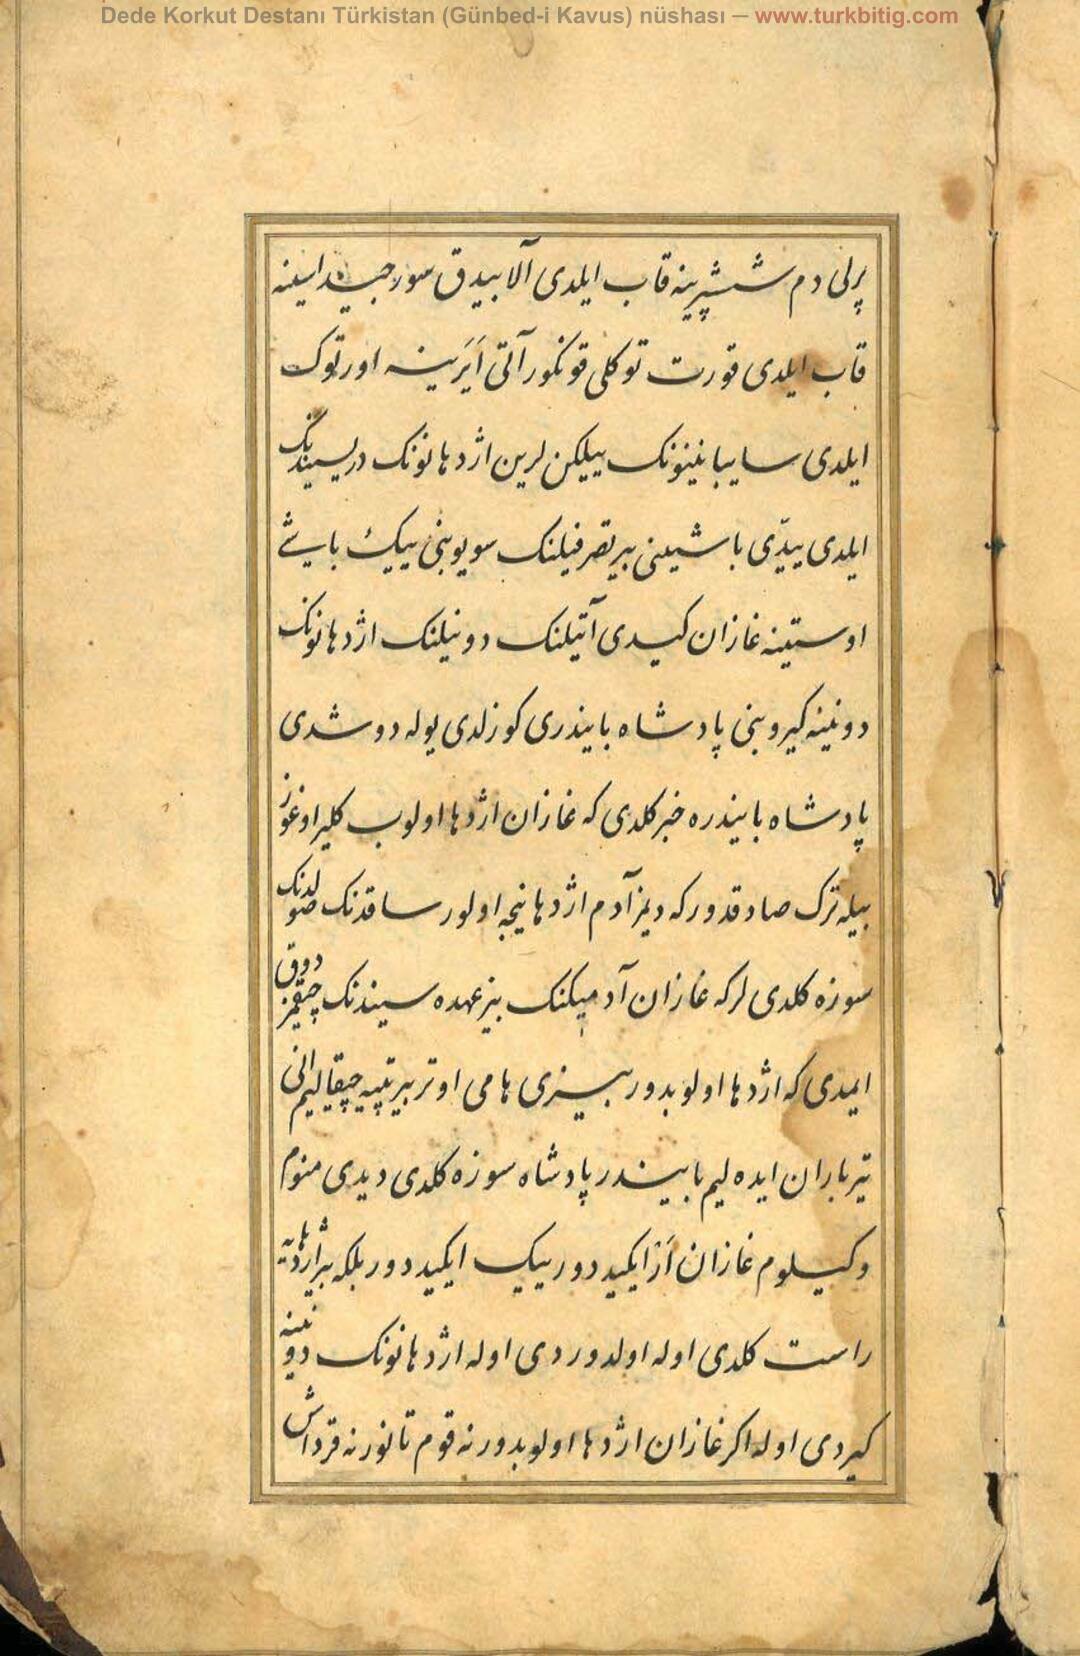 Dede Korkut Destanı Türkistan (Günbed-i Kavus) nüshası — www.turkbitig.com
پرلی دم ششپرینه قاب ایلدی آلا بیدق سور جیداسینه
قاب ایلدی قورت توکلی قونکور آتی اَیَرینه اورتوک
ایلدی سایبانینونک ییلکن لرین اژدهانونک دریسیندنک
ایلدی ییدّی باشینی بیر یقر فیلنک سویوبنی ییک باشی
اوستینه غازان کیدی آتیلنک دونیلنک اژدهانونک
دونینه کیروبنی پادشاه بایندری کوزلدی یوله دوشدی
پادشاه بایندره خبر کلدی که غازان اژدها اولوب کلیر اوغوز
بیله ترک صادقدور که دیمز آدم اژدها نیجه اولور ساقدنک صولدنک
سوزه کلدی لر که غازان آدمیکنک بیز عهده سیندنک چیقمزدوق
ایمدی که اژدها اولوبدور بیزی هامی اوتر بیر تپیه چیقالیم انی
تیرباران ایده لیم بایندر پادشاه سوزه کلدی دیدی منوم
وکیلوم غازان اَز ایکیددور ییک ایکیددور بلکه بیر اژدهایه
راست کلدی اوله اولدوردی اوله اژدهانونک دونینه
کیردی اوله اکر غازان اژدها اولوبدور نه قوم تانور نه قرداش